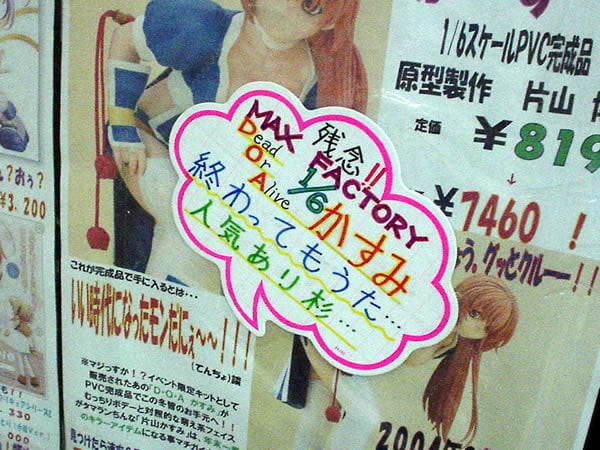 1/6スケールPVC完成品
原型製作 片山
定価 ¥819
↓
¥7460 !
う。グッとクルー!!
残念!!
MAX FACTORY
Dead Or Alive
1/6 かすみ
終わってもうた…
人気あり杉…
?おぅ?
¥3,200
これが完成品で手に入るとは…
いい時代になったモンだにぇ~~!!!
(てんちょ)談
※マジっすか!?イベント限定キットとして
販売されたあの「D・O・A かすみ」が
PVC完成品でこの冬皆のお手元へ!!
もっちりボデーと対照的な萌え系フェイス
がタマランちんな「片山かすみ」は、年末一番
のキラーアイテムになる事マチガイ
見つけたら速攻
330
2004年